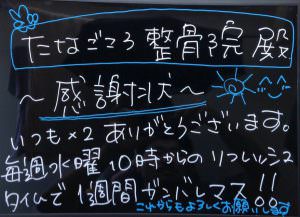 たなごころ整骨院殿
～感謝状～
いつも×2 ありがとうございます。
毎週水曜10時からのリつレッシュ
タイムで1週間ガンバレマス!!
これからもよろしくお願いします